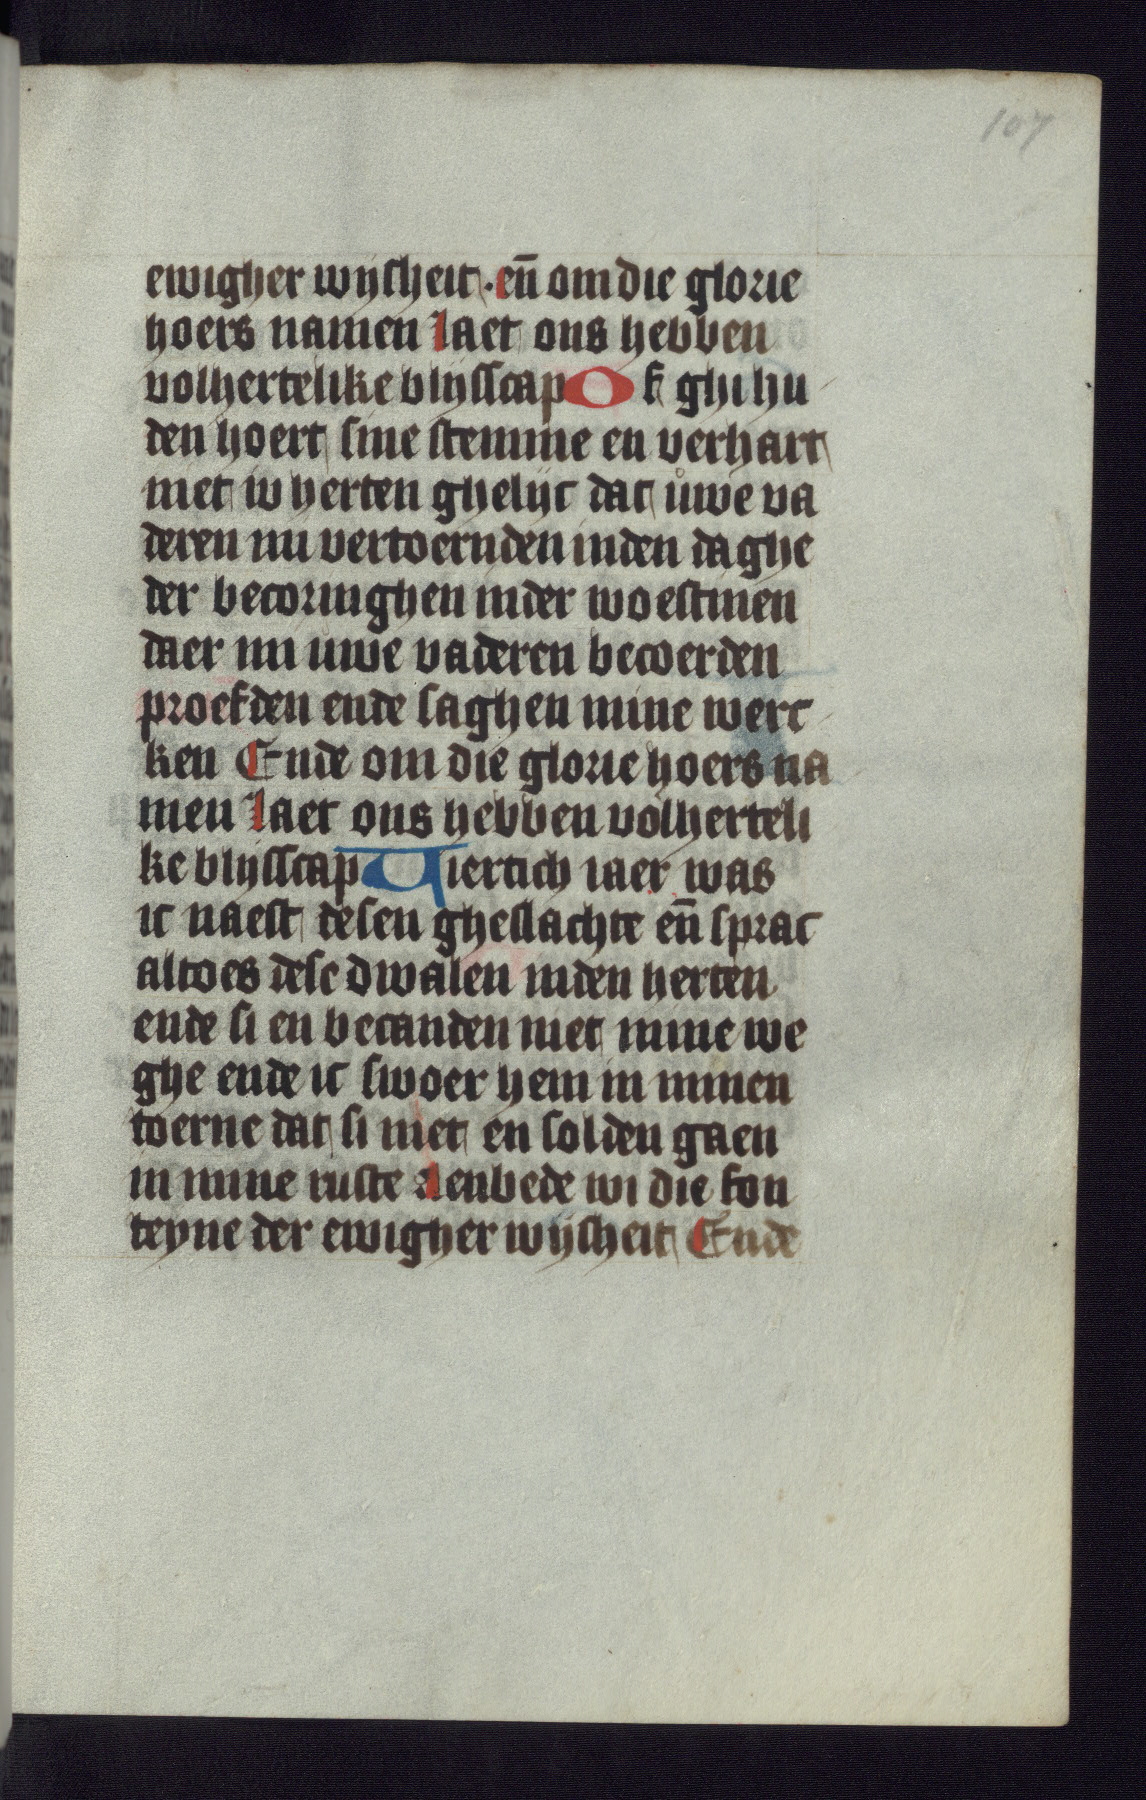 107
ewigher wijsheit · en̄ om die glorie
hoers namen laet ons hebben
volhertelike blijsscap Of ghi hu
den hoert sine stemme en verhart
niet iw herten ghelijc dat uwe va
deren mi vertoernden inden daghe
der becoringhen inder woestinen
daer mi uwe vaderen becoerden
proefden ende saghen mine werc
ken Ende om die glorie hoers na
men laet ons hebben volherteli
ke blijsscap Viertich iaer was
ic naest desen gheslachte en̄ sprac
altoes dese dwalen inden herten
ende si en becanden niet mine we
ghe ende ic swoer hem in minen
toerne dat si niet en solden gaen
in mine ruste Aenbede wi die fon
teyne der ewigher wijsheit Ende